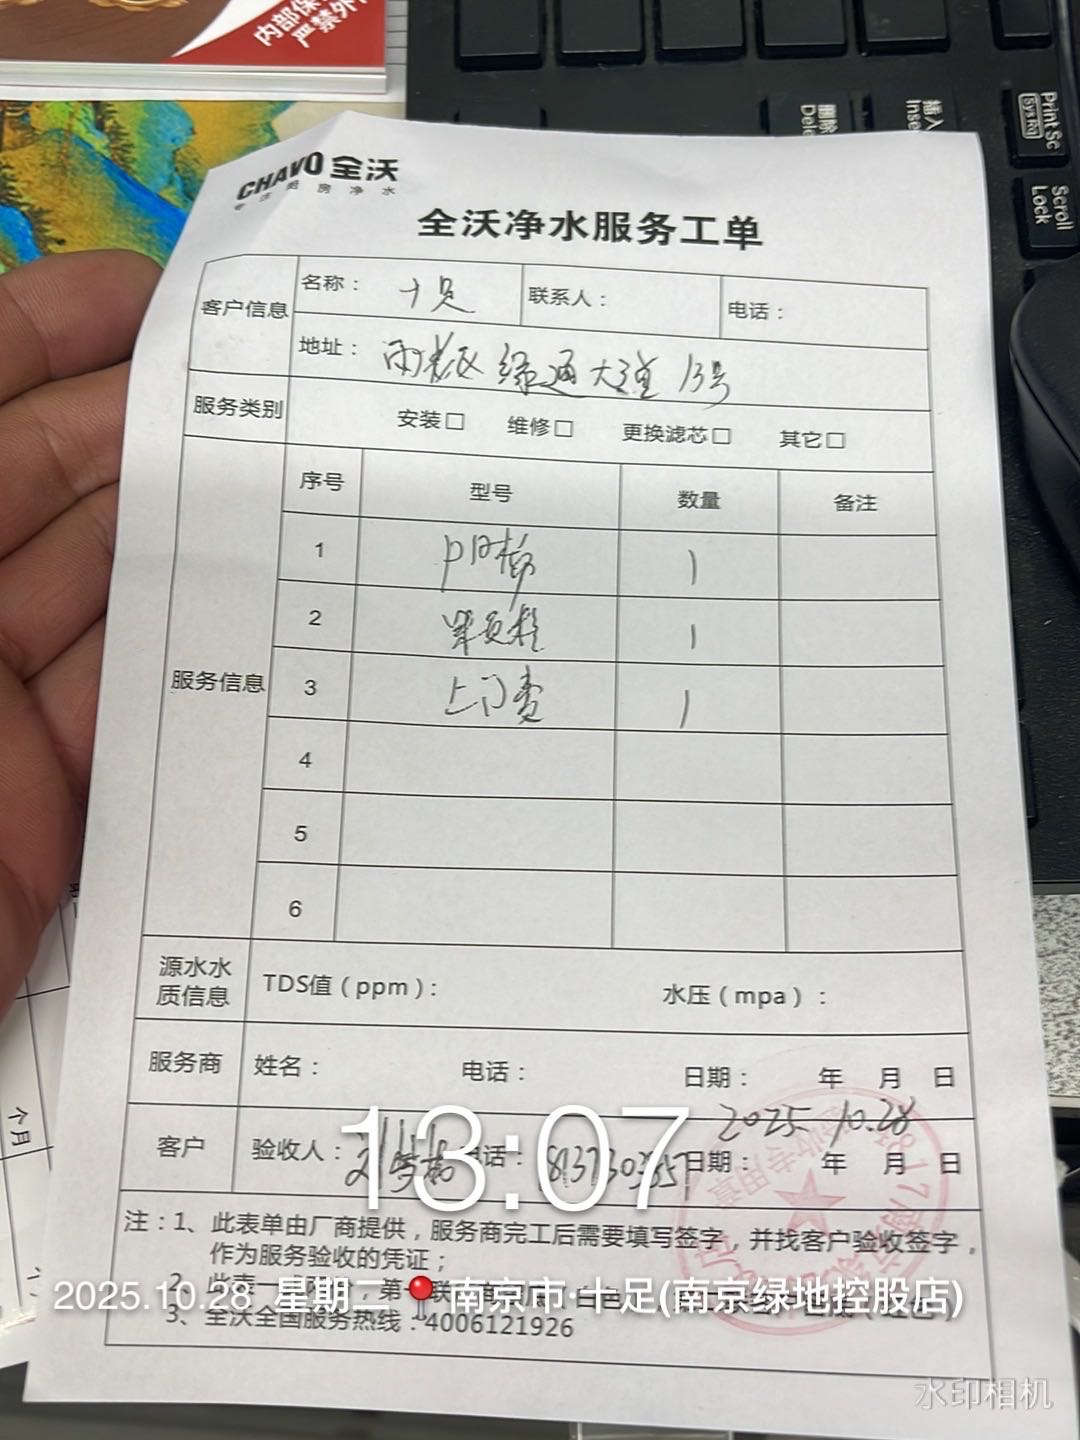 内部保
严禁外
删除
Dele
插入
Inse
Print Sc
SysRq
Scroll
Lock
CHAVO 全沃
房净水
全沃净水服务工单
客户信息
名称： 十足
联系人：
电话：
地址： 雨花区 绿通大道 13号
服务类别
安装□ 维修□ 更换滤芯□ 其它□
服务信息
序号 型号 数量 备注
1 1
2 1
3 上门费 1
4
5
6
源水水质信息
TDS值（ppm）：
水压（mpa）：
服务商
姓名： 电话： 日期： 年 月 日
2025 10.28
客户
验收人： 电话： 日期： 年 月 日
13:07
注：1、此表单由厂商提供，服务商完工后需要填写签字，并找客户验收签字，
作为服务验收的凭证；
2、此表一
3、全沃全国服务热线：4006121926
2025.10.28 星期二 南京市·十足(南京绿地控股店)
专用章
个月
水印相机